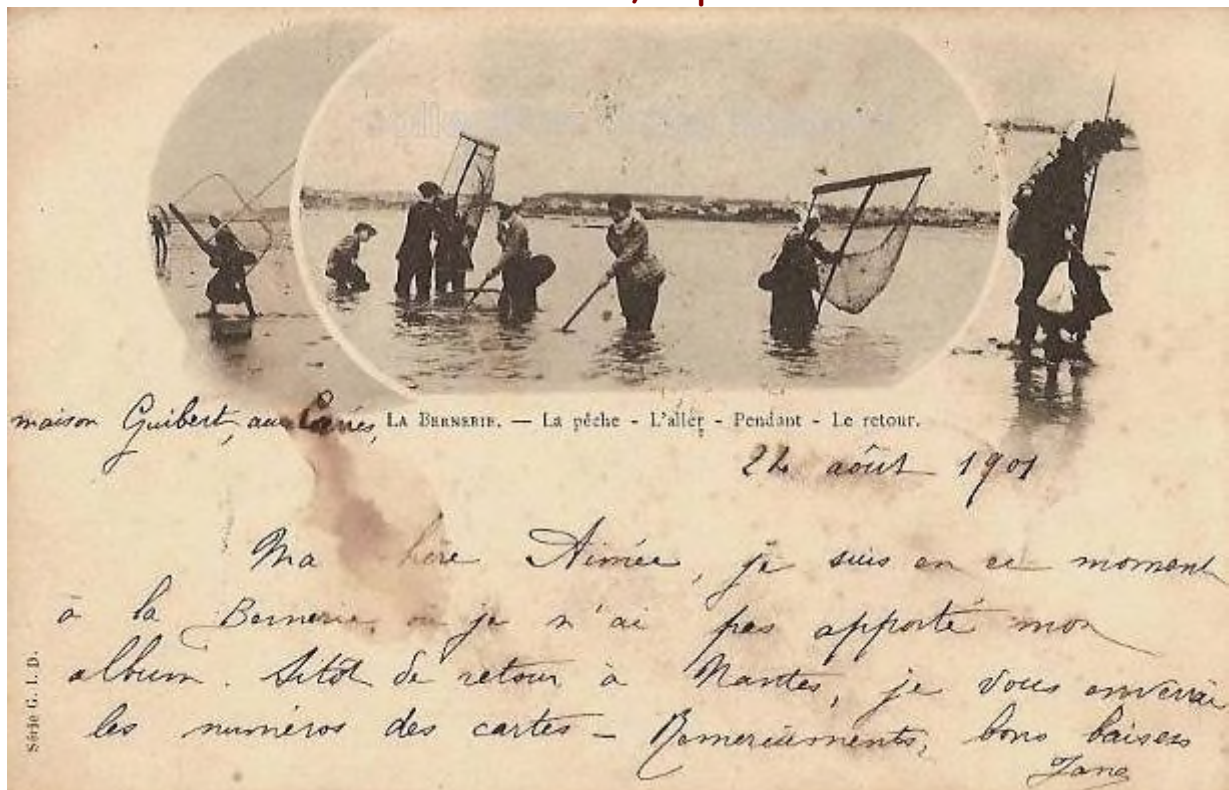 maison Guibert, aux
LA BERNERIE. — La pêche - L'aller - Pendant - Le retour.
22 août 1901
Ma chère Aimée, je suis en ce moment
à la Bernerie, où je n'ai pas apporté mon
album. Sitôt de retour à Nantes, je vous enverrai
les numéros des cartes — Remerciements, bons baisers
Jane
Série G. I. D.